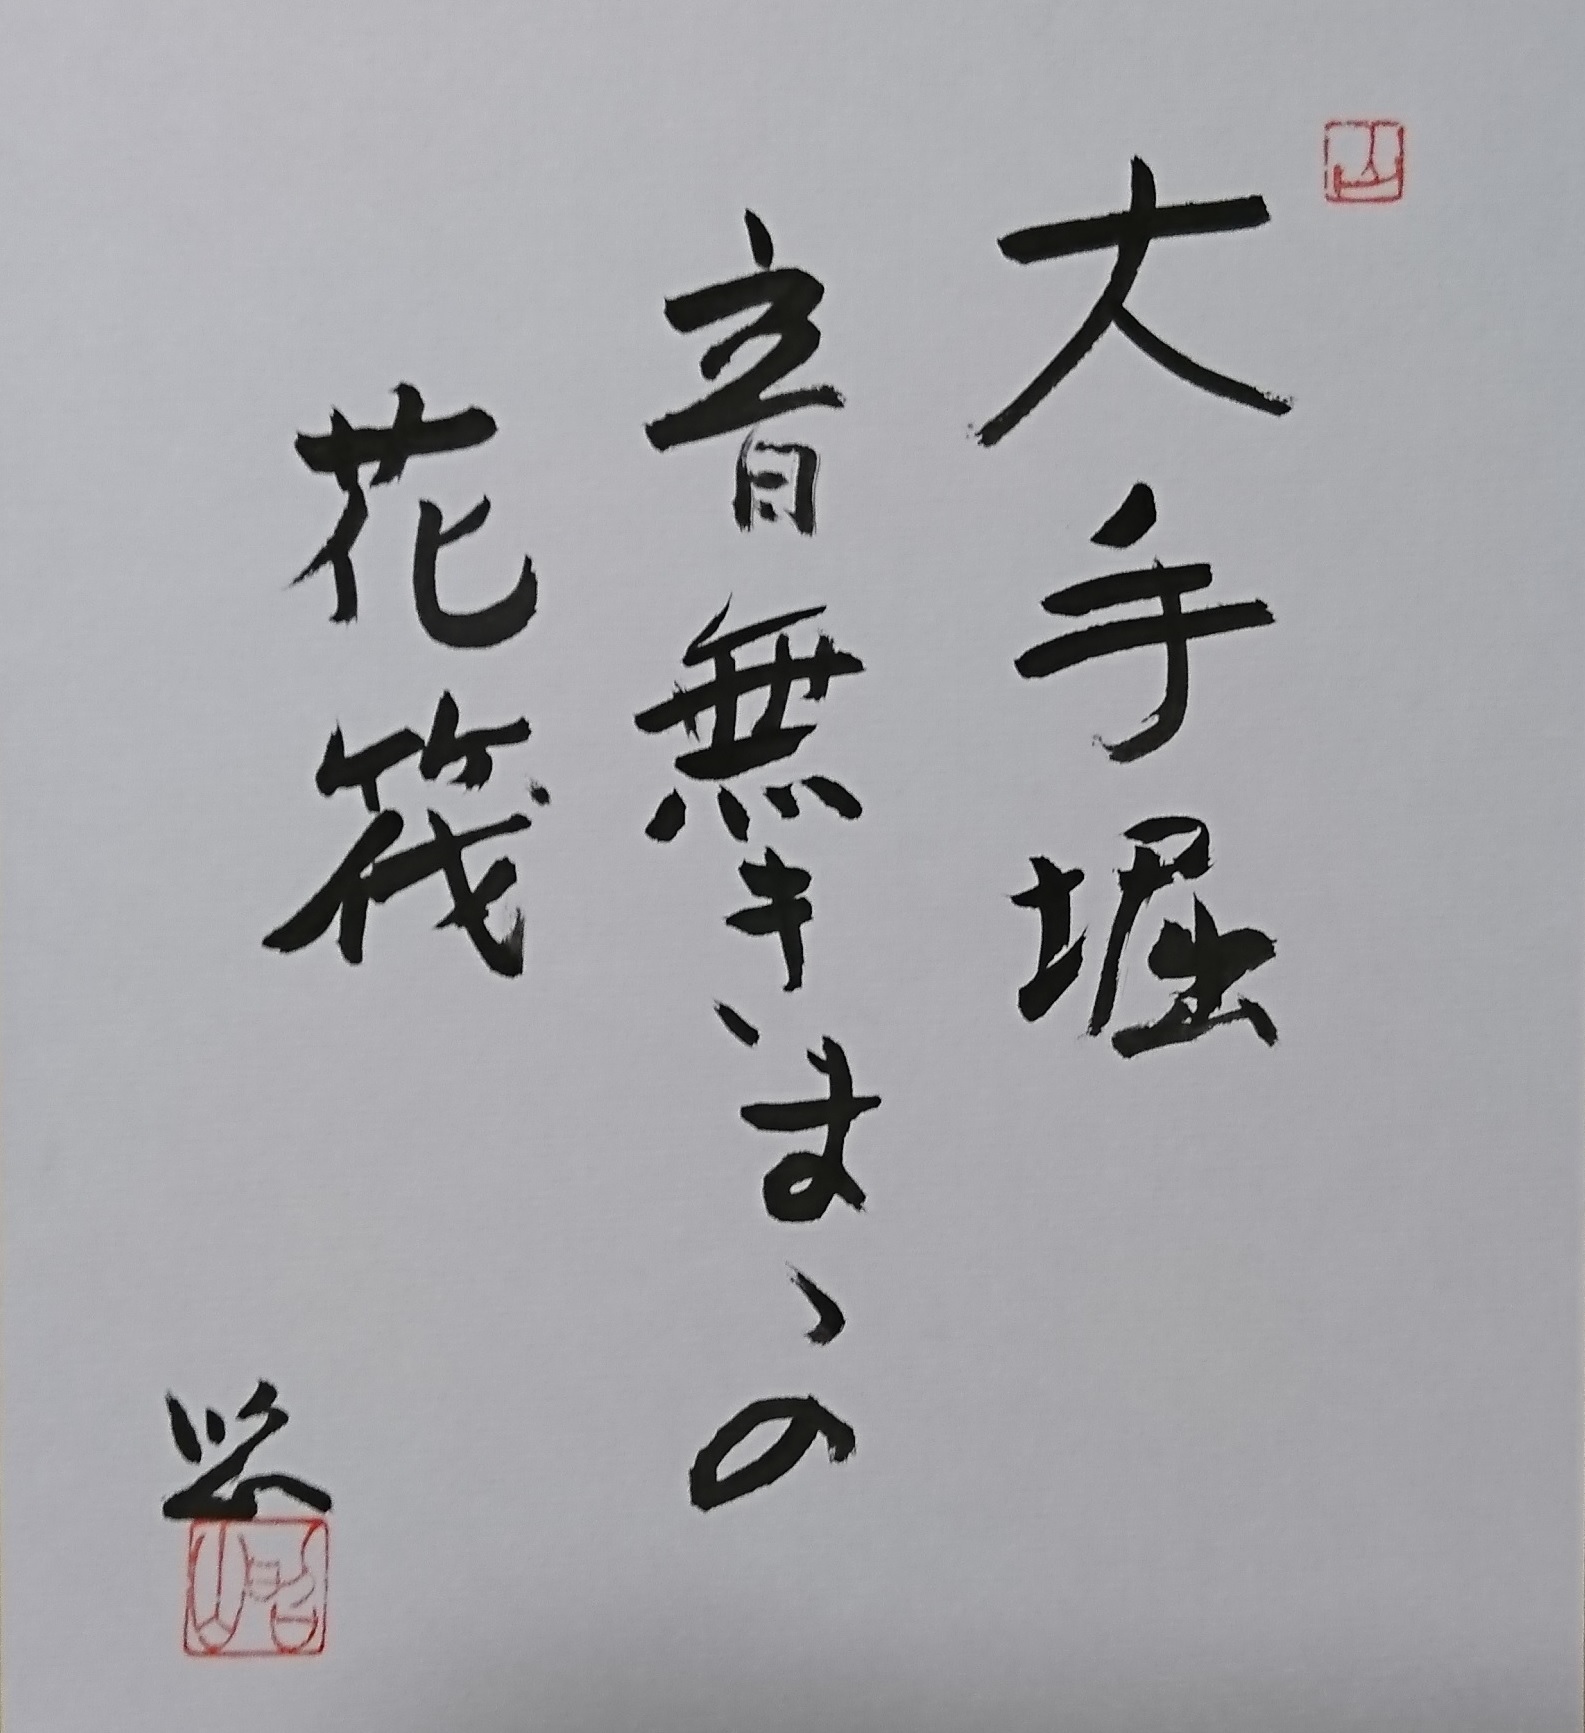 大手堀
音無きまゝの
花筏